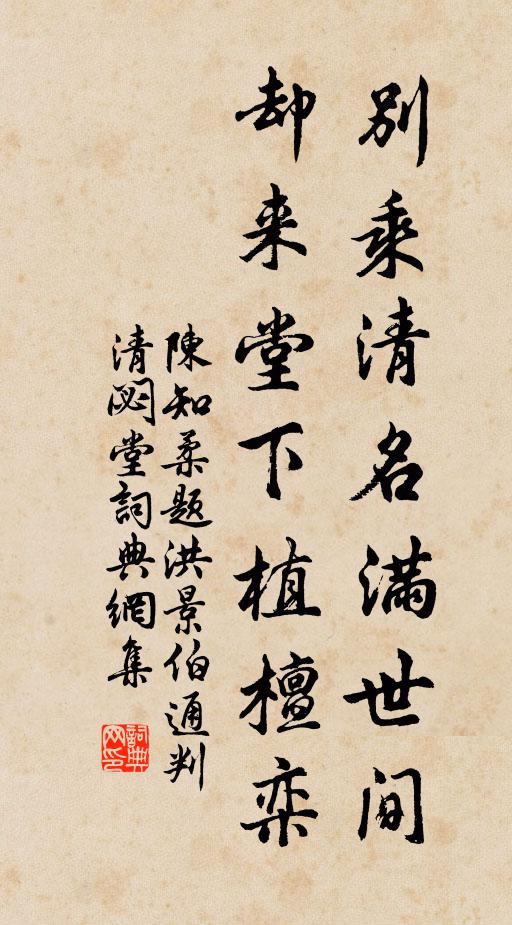 別乘清名滿世间
却来堂下植檀栾
陳知柔题洪景伯通判
清閟堂詞典網集
詞典网印